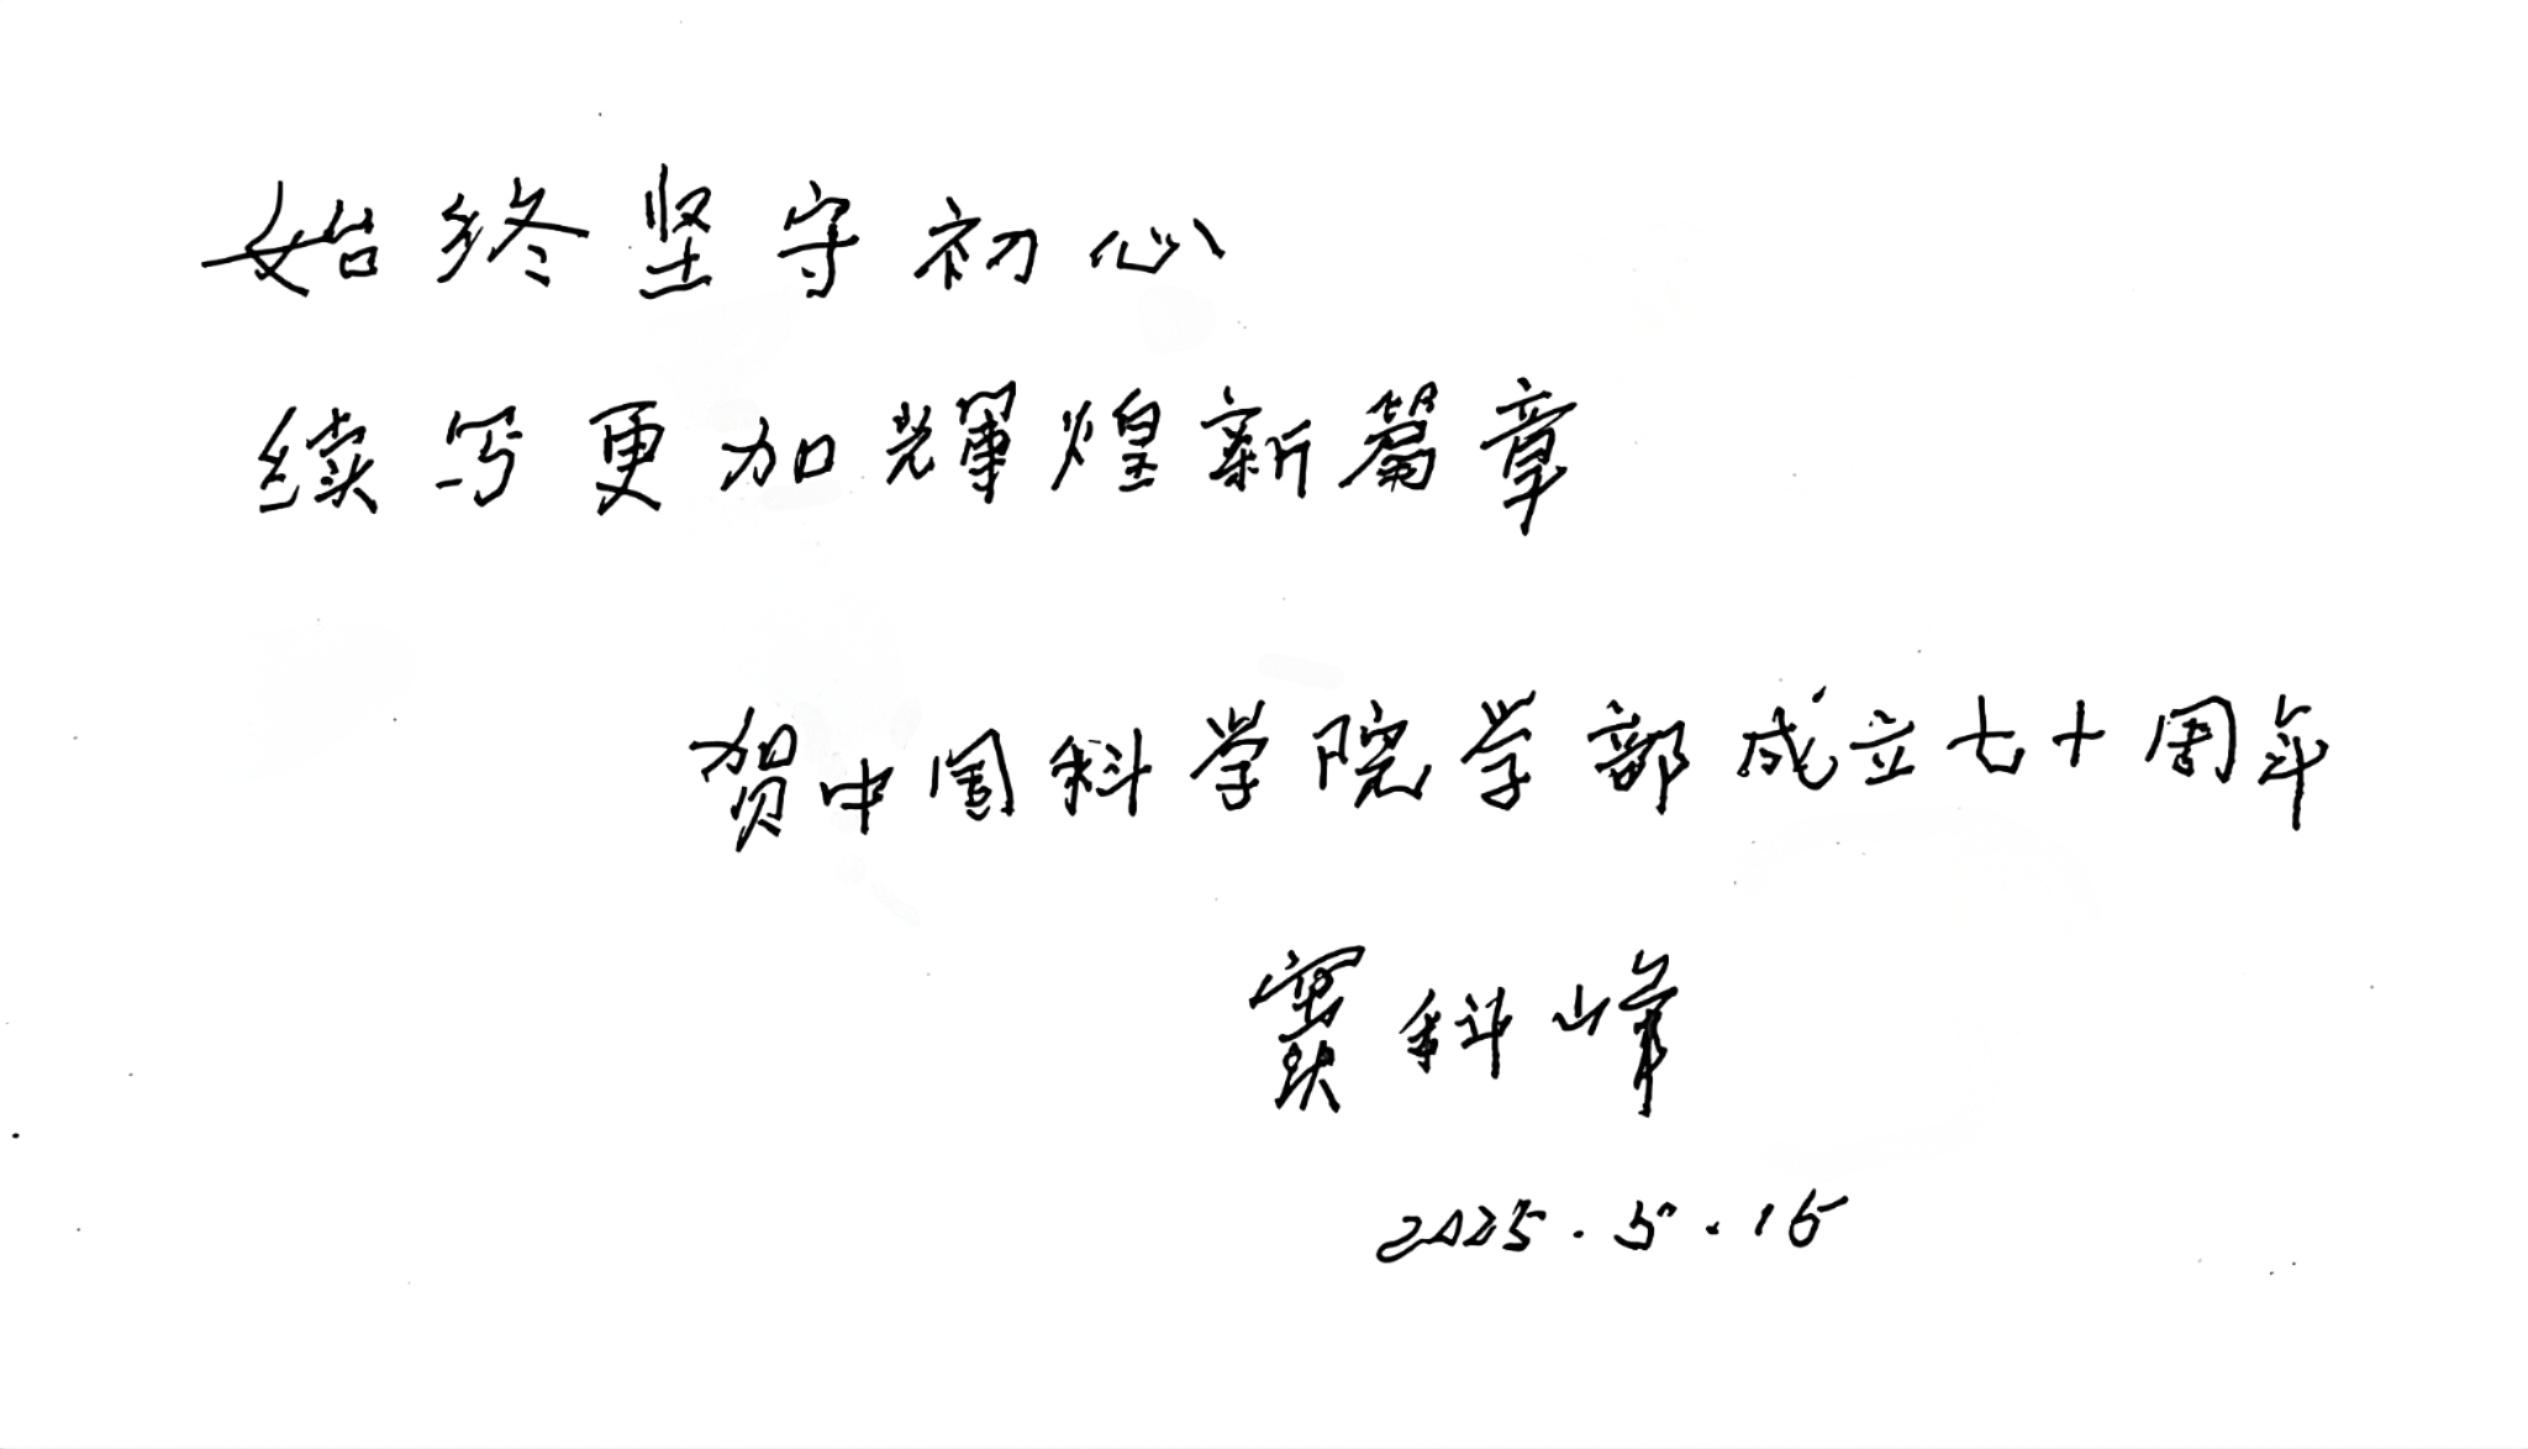 始终坚守初心
续写更加辉煌新篇章
贺中国科学院学部成立七十周年
窦科峰
2025.5.15